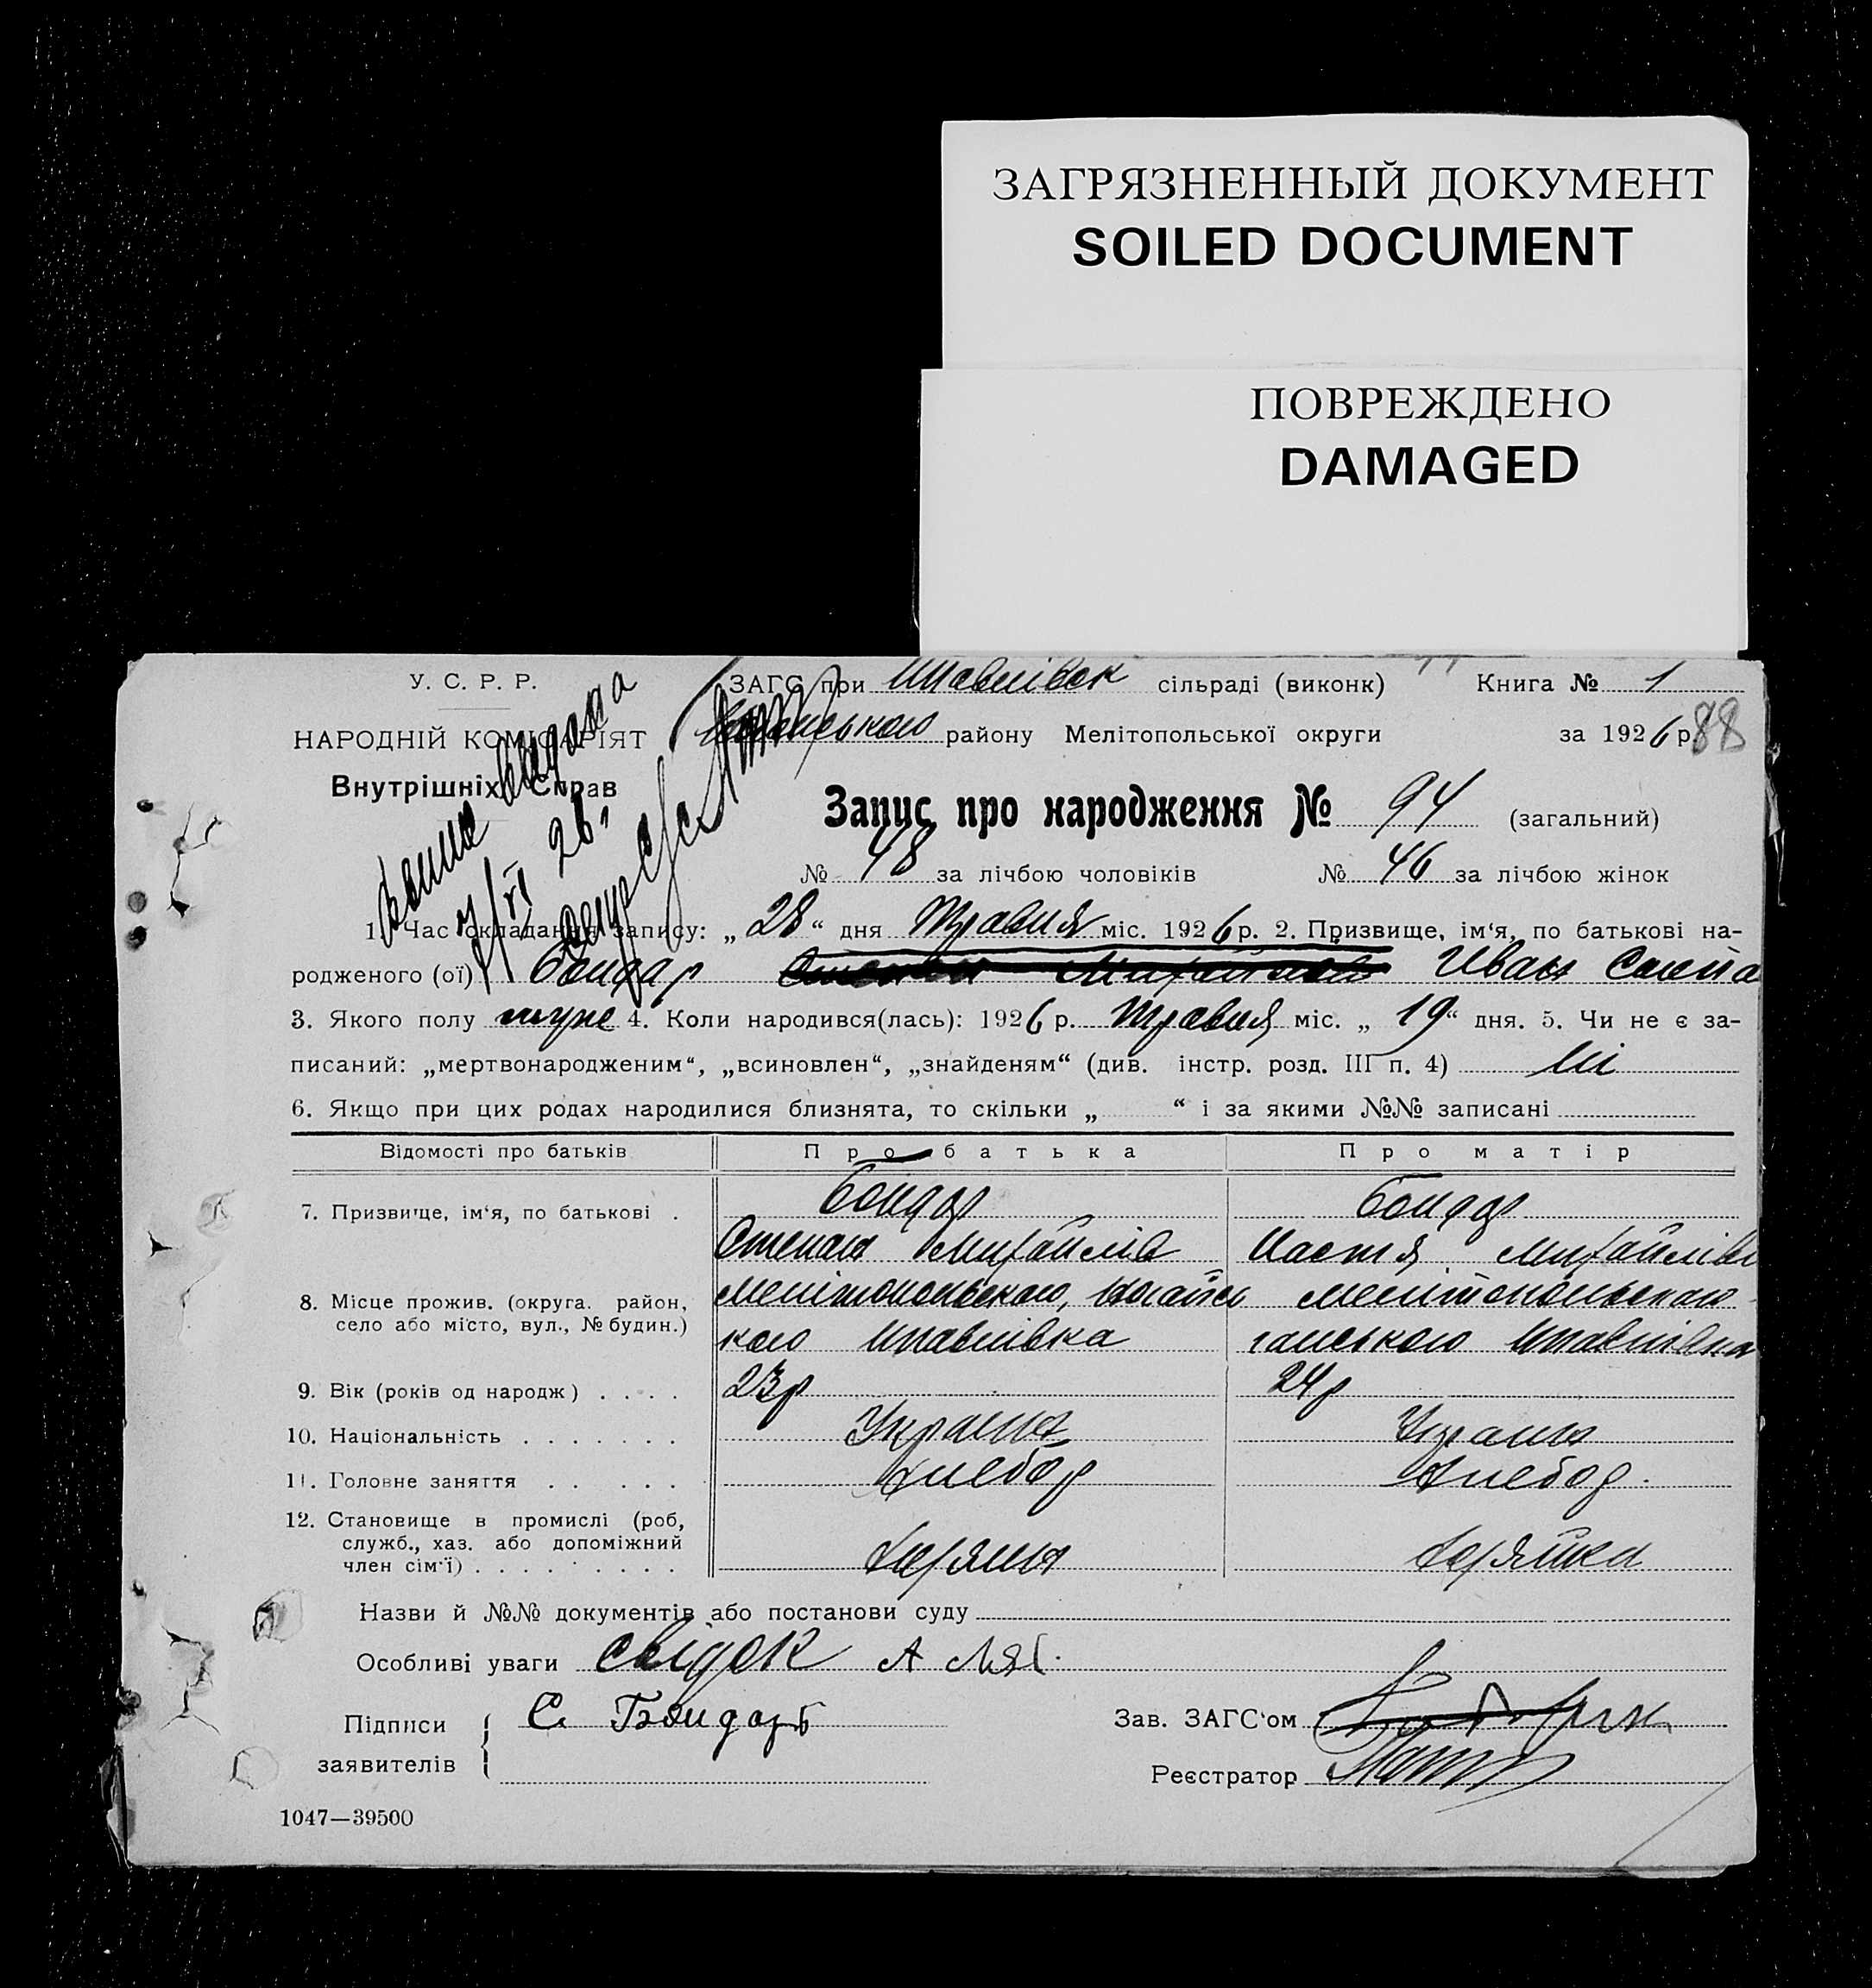 ЗАГРЯЗНЕННЫЙ ДОКУМЕНТ
SOILED DOCUMENT
ПОВРЕЖДЕНО
DAMAGED
У. С. Р. Р.
НАРОДНІЙ КОМІСАРІЯТ
Внутрішніх Справ
Копия выдана
7/VI 26.
ЗАГС при сільраді (виконк) Книга № 1
району Мелітопольської округи за 1926 р. 88
Запис про народження № 94 (загальний)
№ 48 за лічбою чоловіків № 46 за лічбою жінок
1. Час складання запису: „28“ дня Травня міс. 1926 р. 2. Призвище, ім‘я, по батькові на-
родженого (ої) Бондар Иван Степа
3. Якого полу муже 4. Коли народився(лась): 1926 р. Травня міс. „19“ дня. 5. Чи не є за-
писаний: „мертвонародженим“, „всиновлен“, „знайденям“ (див. інстр. розд. III п. 4) ні
6. Якщо при цих родах народилися близнята, то скільки „ “ і за якими №№ записані
Відомості про батьків Про батька Про матір
7. Призвище, ім‘я, по батькові . Бондар Бондар
Степан Михайлів Настя Михайлівн
8. Місце прожив. (округа. район, село або місто, вул., № будин.) Мелітопольського, Ногайсь Мелітопольського
кого гайського
9. Вік (років од народж) . . . . 23 р 24 р
10. Національність . . . . . . . Украин Украин
11. Головне заняття . . . . . Хлебор Хлебор.
12. Становище в промислі (роб,
служб., хаз. або допоміжний
член сім‘ї) . . . . . . . . .
Назви й №№ документів або постанови суду
Особливі уваги свідок А
Підписи заявителів { С. Бондарь
Зав. ЗАГС‘ом
Реєстратор
1047—39500